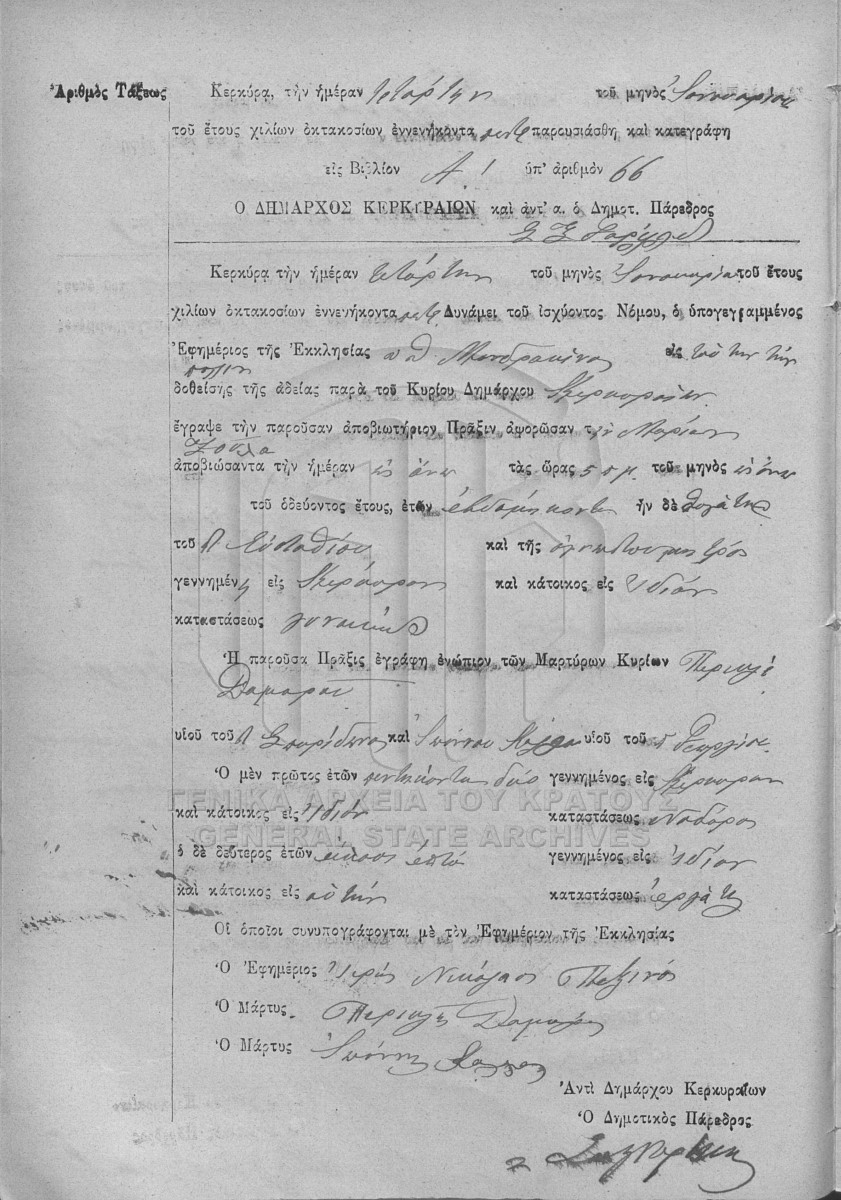 Ἀριθμὸς Τάξεως
Κερκύρα, τὴν ἡμέραν τετάρτην τοῦ μηνὸς Ἰανουαρίου
τοῦ ἔτους χιλίων ὀκτακοσίων ἐννενήκοντα πέντε παρουσιάσθη καὶ κατεγράφη
εἰς Βιβλίον Α! ὑπ' ἀριθμὸν 66
Ο ΔΗΜΑΡΧΟΣ ΚΕΡΚΥΡΑΙΩΝ καὶ ἀντ' α. ὁ Δημοτ. Πάρεδρος
Κερκύρα τὴν ἡμέραν τετάρτην τοῦ μηνὸς Ἰανουαρίου τοῦ ἔτους
χιλίων ὀκτακοσίων ἐννενήκοντα πέντε Δυνάμει τοῦ ἰσχύοντος Νόμου, ὁ ὑπογεγραμμένος
Ἐφημέριος τῆς Ἐκκλησίας Μανδρακίνας εἰς ταύτην τὴν
πόλιν
δοθείσης τῆς ἀδείας παρὰ τοῦ Κυρίου Δημάρχου Κερκυραίων
ἔγραψε τὴν παροῦσαν ἀποβιωτήριον Πρᾶξιν ἀφορῶσαν τὴν Μαρίαν
ἀποβιώσαντα τὴν ἡμέραν ὡς ἄνω τὰς ὥρας 5 π μ. τοῦ μηνὸς ὡς ἄνω
τοῦ ὁδεύοντος ἔτους, ἐτῶν ἑβδομήκοντα ἦν δὲ θυγάτηρ
τοῦ Π Εὐσταθίου καὶ τῆς ἀγνώστου μητρός
γεννημένη εἰς Κέρκυραν καὶ κάτοικος εἰς Ἰδίαν
καταστάσεως
Ἡ παροῦσα Πρᾶξις ἐγράφη ἐνώπιον τῶν Μαρτύρων Κυρίων Περικλῆ
Δαμάρη
υἱοῦ τοῦ Π Σπυρίδωνος καὶ Ἰωάννου υἱοῦ τοῦ Π Γεωργίου
Ὁ μὲν πρῶτος ἐτῶν πεντήκοντα δύο γεννημένος εἰς Κέρκυραν
καὶ κάτοικος εἰς Ἰδίαν καταστάσεως Νοδάρος
ὁ δὲ δεύτερος ἐτῶν εἴκοσι ἑπτά γεννημένος εἰς Ἰδίαν
καὶ κάτοικος εἰς αὐτήν καταστάσεως ἐργάτης
Οἱ ὁποῖοι συνυπογράφονται μὲ τὸν Ἐφημέριον τῆς Ἐκκλησίας
Ὁ Ἐφημέριος Ἱερεύς Νικόλαος
Ὁ Μάρτυς Περικλῆς Δαμάρης
Ὁ Μάρτυς Ἰωάννης
Ἀντὶ Δημάρχου Κερκυραίων
Ὁ Δημοτικὸς Πάρεδρος
ΓΕΝΙΚΑ ΑΡΧΕΙΑ ΤΟΥ ΚΡΑΤΟΥΣ
GENERAL STATE ARCHIVES